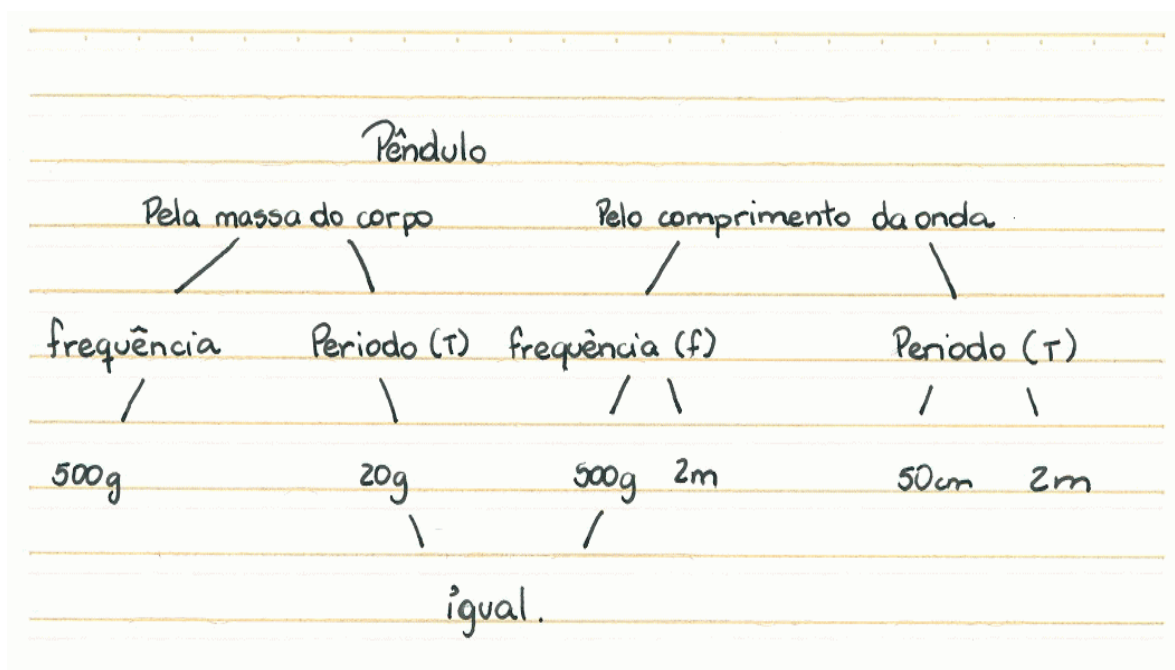 Pêndulo
Pela massa do corpo Pelo comprimento da onda
frequência Periodo (T) frequência (f) Periodo (T)
500g 20g 500g 2m 50cm 2m
igual.